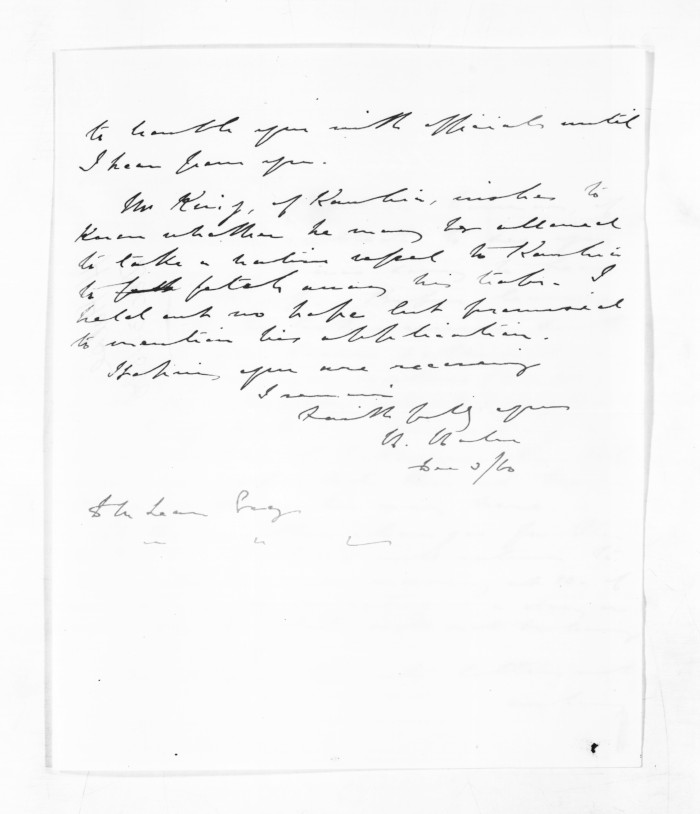 to trouble you with officials until
I hear from you.
Mr King, of Kawhia, wishes to
know whether he may be allowed
to take a native vessel to Kawhia
to fetch away his traps. I
held out no hope but promised
to mention his application.
Hoping you are recovering
I remain
Faithfully yours
H. Halse
Dec 3/60
D McLean Esq
" " "